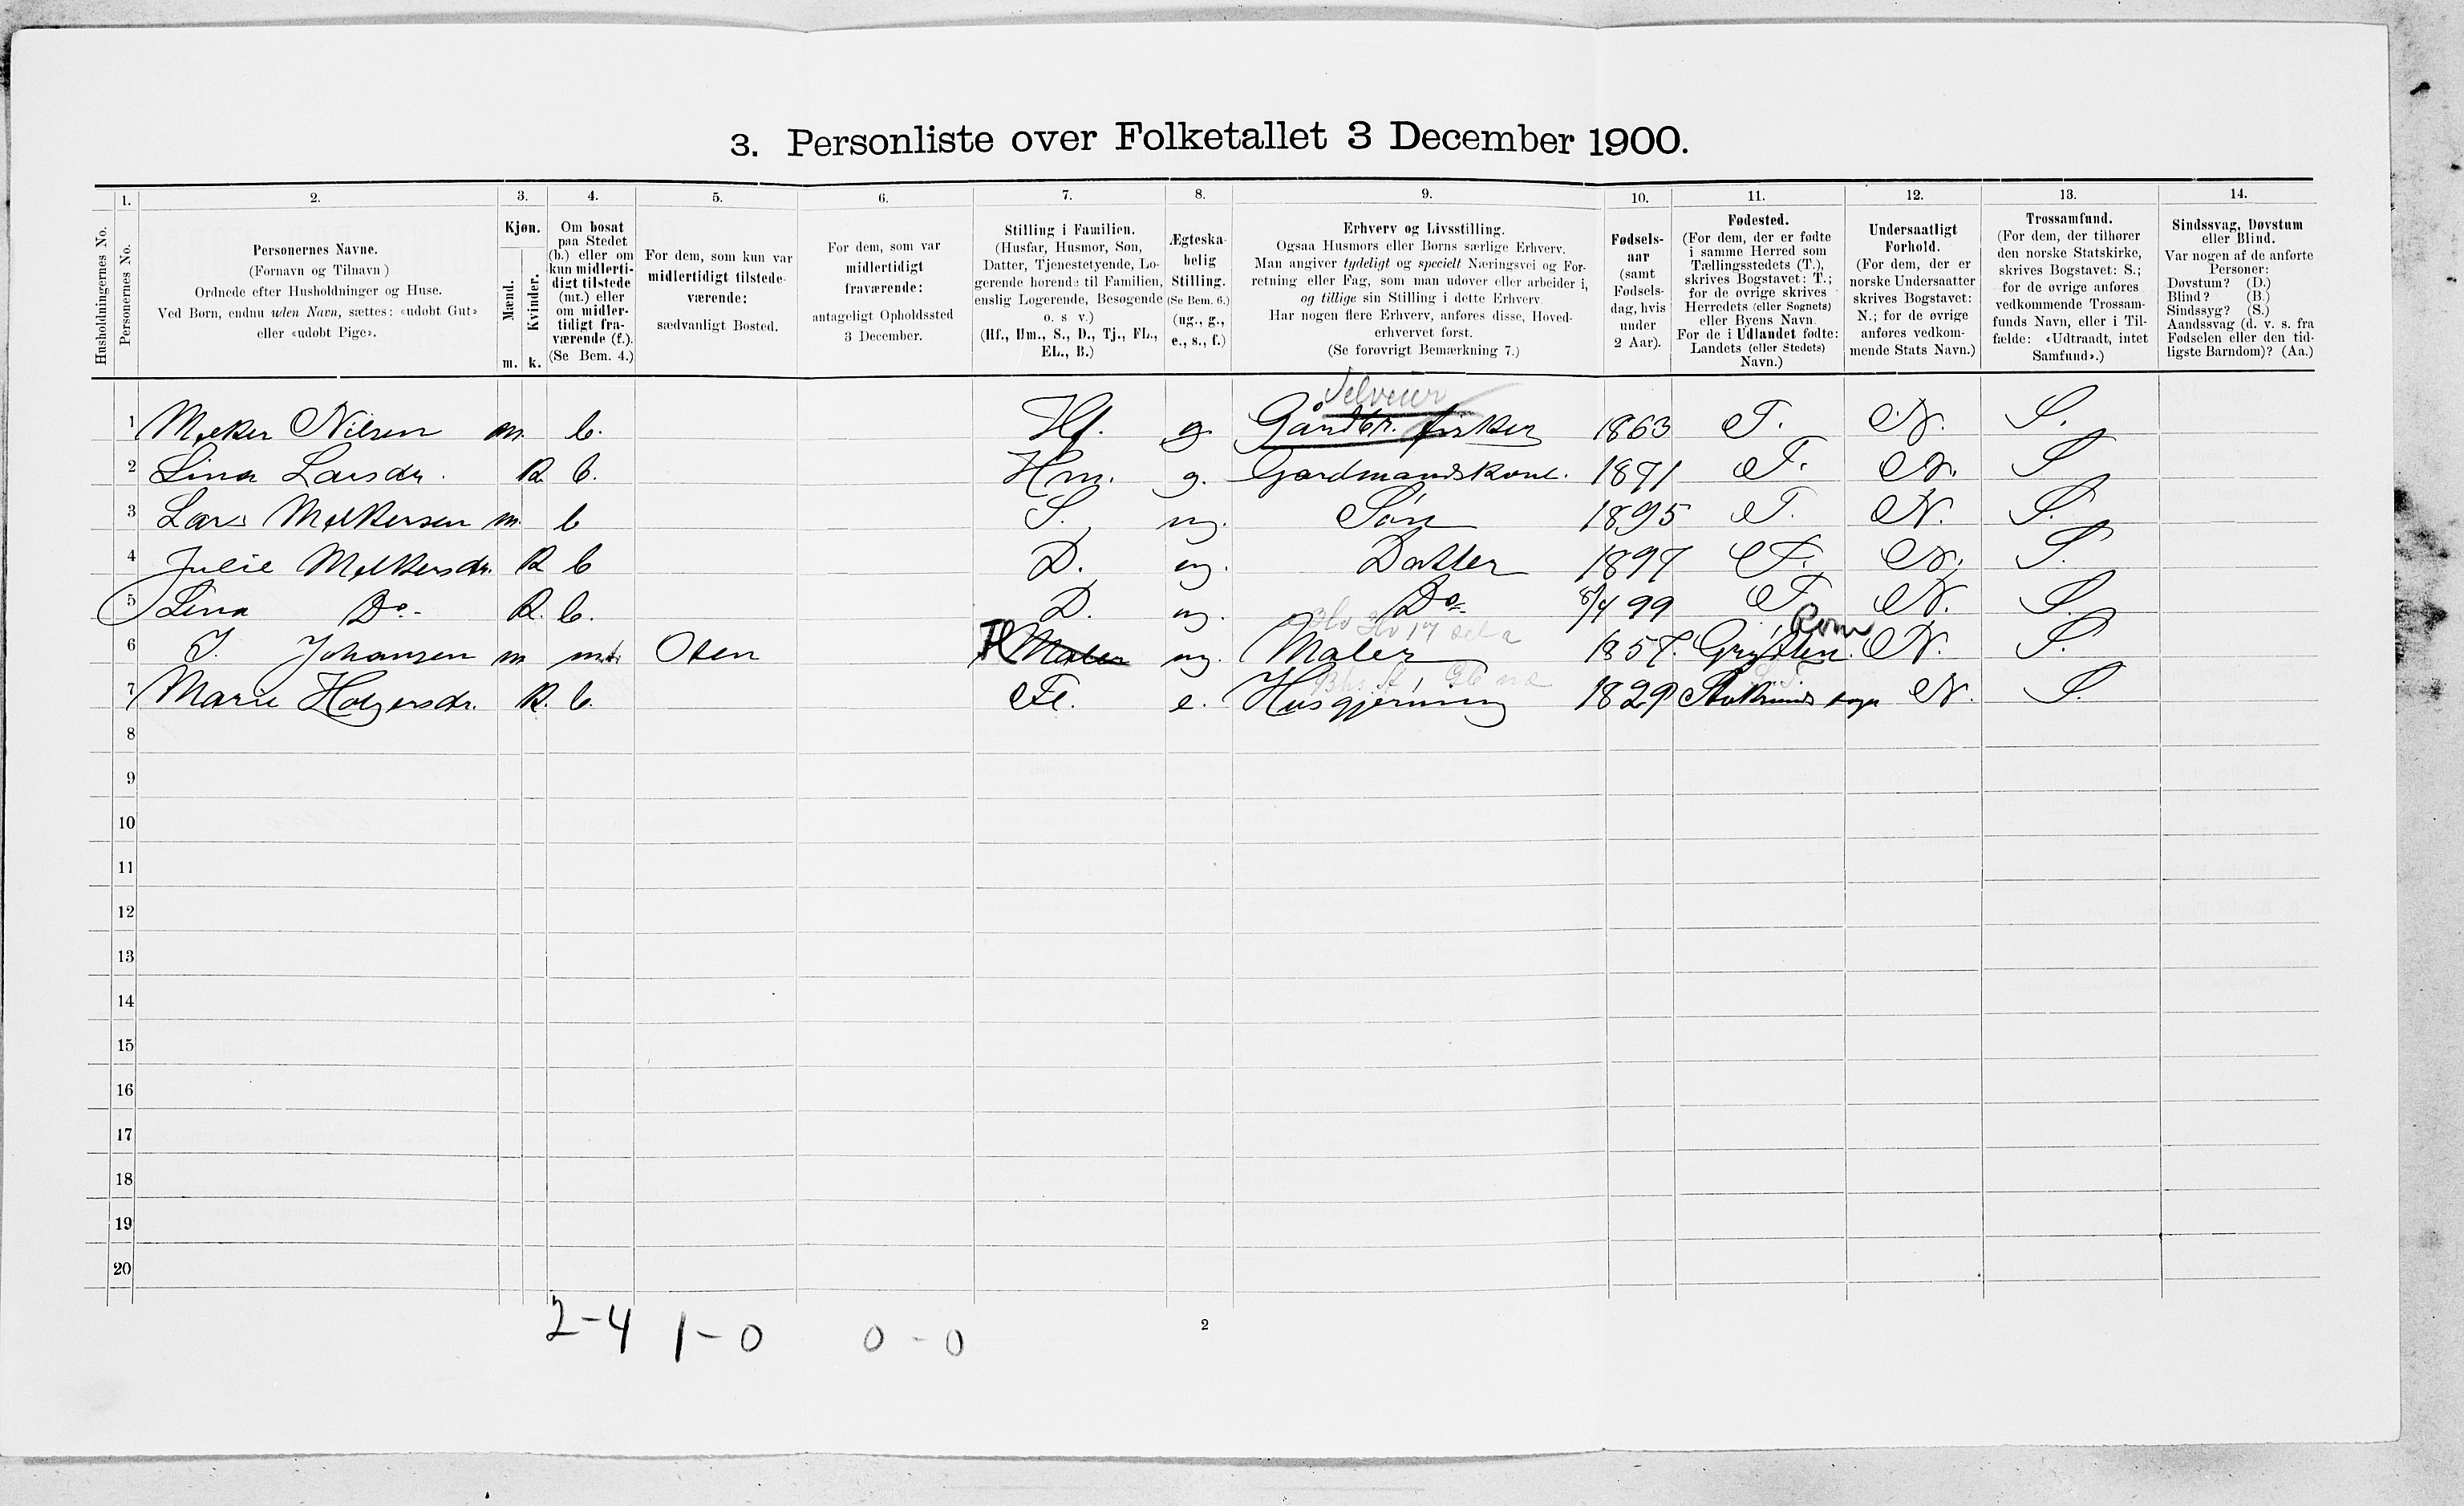 3. Personliste over Folketallet 3 December 1900.
1. 2. 3. 4. 5. 6. 7. 8. 9. 10. 11. 12. 13. 14.
Husholdningernes No.
Personernes No.
Personernes Navne.
(Fornavn og Tilnavn)
Ordnede efter Husholdninger og Huse.
Ved Børn, endnu uden Navn, sættes: «udøbt Gut»
eller «udøbt Pige».
Kjøn.
Mænd.
Kvinder.
m. k.
Om bosat
paa Stedet
(b.) eller om
kun midlerti-
digt tilstede
(mt.) eller
om midler-
tidigt fra-
værende (f.).
(Se Bem. 4.)
For dem, som kun var
midlertidigt tilstede-
værende:
sædvanligt Bosted.
For dem, som var
midlertidigt
fraværende:
antageligt Opholdssted
3 December.
Stilling i Familien.
(Husfar, Husmor, Søn,
Datter, Tjenestetyende, Lo-
gerende hørende til Familien,
enslig Logerende, Besøgende
o. s v.)
(Hf., Hm., S., D., Tj., FL.,
EL., B.)
Ægteska-
belig
Stilling.
(Se Bem. 6.)
(ug., g.,
e., s., f.)
Erhverv og Livsstilling.
Ogsaa Husmors eller Børns særlige Erhverv.
Man angiver tydeligt og specielt Næringsvei og For-
retning eller Fag, som man udøver eller arbeider i,
og tillige sin Stilling i dette Erhverv.
Har nogen flere Erhverv, anføres disse, Hoved-
erhvervet først.
(Se forøvrigt Bemærkning 7.)
Fødsels-
aar
(samt
Fødsels-
dag, hvis
under
2 Aar).
Fødested.
(For dem, der er fødte
i samme Herred som
Tællingsstedets (T.),
skrives Bogstavet: T.;
for de øvrige skrives
Herredets (eller Sognets)
eller Byens Navn.
For de i Udlandet fødte:
Landets (eller Stedets)
Navn.)
Undersaatligt
Forhold.
(For dem, der er
norske Undersaatter
skrives Bogstavet:
N.; for de øvrige
anføres vedkom-
mende Stats Navn.)
Trossamfund.
(For dem, der tilhører
den norske Statskirke,
skrives Bogstavet: S.;
for de øvrige anføres
vedkommende Trossam-
funds Navn, eller i Til-
fælde: «Udtraadt, intet
Samfund».)
Sindssvag, Døvstum
eller Blind.
Var nogen af de anførte
Personer:
Døvstum? (D.)
Blind? (B.)
Sindssyg? (S.)
Aandssvag (d. v. s. fra
Fødselen eller den tid-
ligste Barndom)? (Aa.)
Selveier
1 Melker Nilsen m. b. Hf. g. Gårdbr. fisker 1863 T. N. S.
2 Lina Larsdr. k b. Hm. g. Gardmandskone. 1871 T. N. S
3 Lars Melkersen m. b S. ug. Søn 1895 T. N. S.
4 Julie Melkersdr. k b D. ug. Datter 1897 T. N. S.
5 Lina Do- k. b. D. ug. Do 8/4 99 T N. S.
Rom
6 J. Johansen m mt. Oten Fl Maler ug. Maler 1857. Grytten. N. S.
7 Marie Holgersdr. k. b. Fl. e. Husgjerning 1829 N. S.
8
9
10
11
12
13
14
15
16
17
18
19
20
2-4 1-0 0-0
2